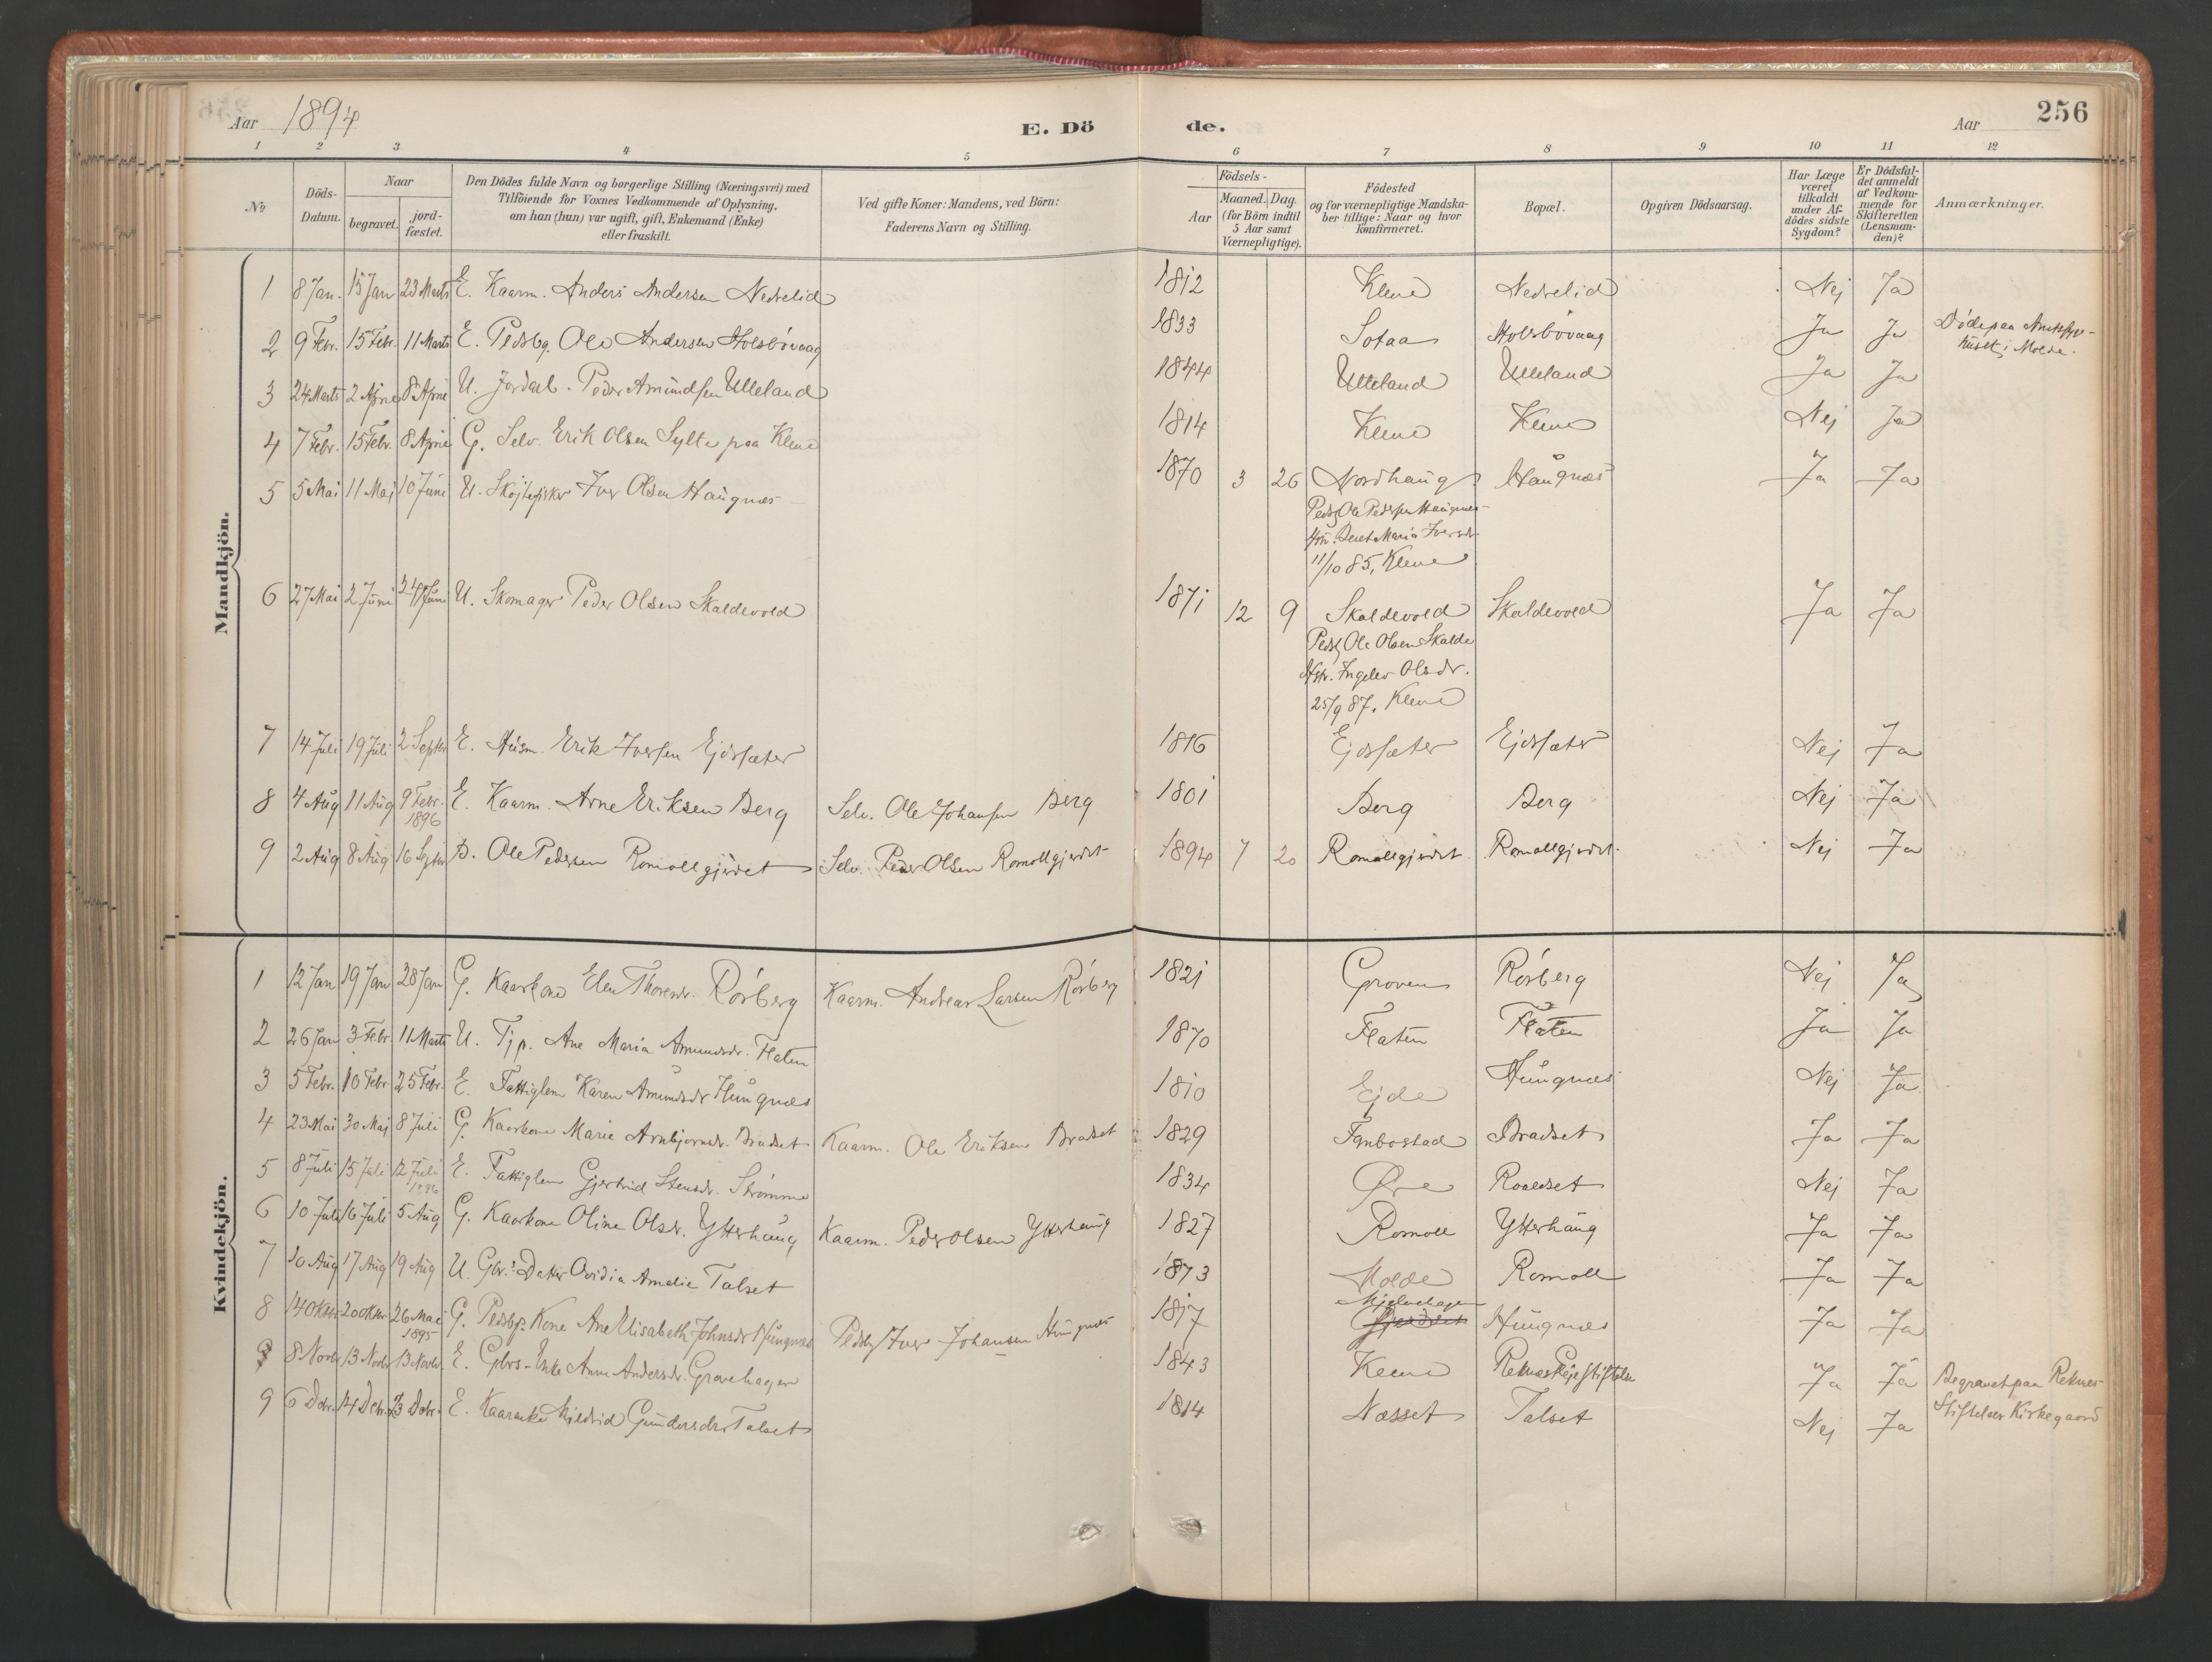 Aar 1894
E. Döde.
Aar
256
1 2 3 4 5 6 7 8 9 10 11 12
No
Döds-Datum.
Naar
begravet.
jord-fæstet.
Den Dödes fulde Navn og borgerlige Stilling (Næringsvei) med
Tilföiende for Voxnes Vedkommende af Oplysning,
om han (hun) var ugift, gift, Enkemand (Enke)
eller fraskilt.
Ved gifte Koner: Mandens, ved Börn:
Faderens Navn og Stilling.
Födsels-
Aar
Maaned. Dag.
(for Börn indtil
5 Aar samt
Værnepligtige).
Födested
og for værnepligtige Mandska-
ber tillige: Naar og hvor
konfirmeret.
Bopæl.
Opgiven Dödsaarsag.
Har Læge
været
tilkaldt
under Af-
dödes sidste
Sygdom?
Er Dödsfal-
det anmeldt
af Vedkom-
mende for
Skifteretten
(Lensman-
den)?
Anmærkninger.
Mandkjön.
1 8 Jan. 15 Jan 23 Marts E. Kaarm. Anders Andersen Nedrelid 1812 Kleve Nedrelid Nej Ja
2 9 Febr. 15 Febr. 11 Marts E. Pedsbg. Ole Andersen Holsbövaag 1833 Sotaa Holsbövaag Ja Ja Död paa Amtssyge-
huset i Molde.
3 24 Marts 2 April 8 April U. Jordarb. Peder Amundsen Ulleland 1844 Ulleland Ulleland Ja Ja
4 7 Febr. 15 Febr. 8 April G. Selv. Erik Olsen Sylte paa Kleve 1814 Kleve Kleve Nej Ja
5 5 Mai 11 Mai 10 Juni U. Iver Olsen Haugnæs 1870 3 26 Nordhaug Haugnæs Ja Ja
Pedsbg Ole Pedersen Haugnæs
Hstr. Beret Maria Iversdr.
11/10 85, Kleve
6 27 Mai 2 Juni 24 Juni U. Skomager Peder Olsen Skaldevold 1871 12 9 Skaldevold Skaldevold Ja Ja
Pedsbg Ole Olsen Skalde
Hstr. Ingelev Olsdr.
25/9 87. Kleve
7 14 Juli 19 Juli 2 Septbr E. Husm. Erik Iversen Ejdssæter 1816 Ejdssæter Ejdssæter Nej Ja
8 4 Aug 11 Aug 9 Febr. 1896 E. Kaarm. Arne Eriksen Berg Selv. Ole Johansen Berg 1801 Berg Berg Nej Ja
9 2 Aug 8 Aug 16 Septbr B. Ole Pedersen Romollgjerdet Selv. Peder Olsen Romollgjerdet 1894 7 20 Romollgjerdet Romollgjerdet Nej Ja
Kvindekjön.
1 12 Jan 19 Jan 28 Jan G. Kaarkone Elen Thoresdr. Rörberg Kaarm. Andreas Larsen Rörberg 1821 Groven Rörberg Nej Ja
2 26 Jan 3 Febr. 11 Marts U. Tjp. Ane Maria Amundsdr. Flaten 1870 Flaten Flaten Ja Ja
3 5 Febr. 10 Febr 25 Febr. E. Fattiglem Karen Amundsdr Hungnæs 1810 Ejde Hungnæs Nej Ja
4 23 Mai 30 Mai 8 Juli G. Kaarkone Marie Arnbjornsdr. Bradset Kaarm. Ole Eriksen Bradset 1829 Bradset Ja Ja
5 8 Juli 15 Juli 12 Juli 1896 E. Fattiglem Gjertrud Stensdr. Strömme 1834 Øre Roaldset Nej Ja
6 10 Juli 16 Juli 5 Aug G. Kaarkone Oline Olsdr. Ytterhaug Kaarm. Peder Olsen Ytterhaug 1827 Romoll Ytterhaug Ja Ja
7 10 Aug 17 Aug 19 Aug U. Gbr.s Datter Ovidia Amalie Talset 1873 Molde Romoll Ja Ja
8 14 Oktbr 20 Oktbr 26 Mai 1895 G. Pedsbg. Kone Ane Elisabeth Johnsdr Hungnæs Pedsbg Iver Johansen Hungnæs 1817 Mjelvehagen Hungnæs Ja Ja
9 8 Novbr 13 Novbr 13 Novbr. E. Gbrs-Enke Anne Andersdr. Grovehagen 1843 Kleve Reknæs Plejestiftelse Ja Ja Begravet paa Reknes-
Stiftelses Kirkegaard
9 6 Dcbr. 14 Dcbr. 23 Dcbr. E. Kaarenke Mildrid Gundersdr Talset 1814 Næsset Talset Nej Ja